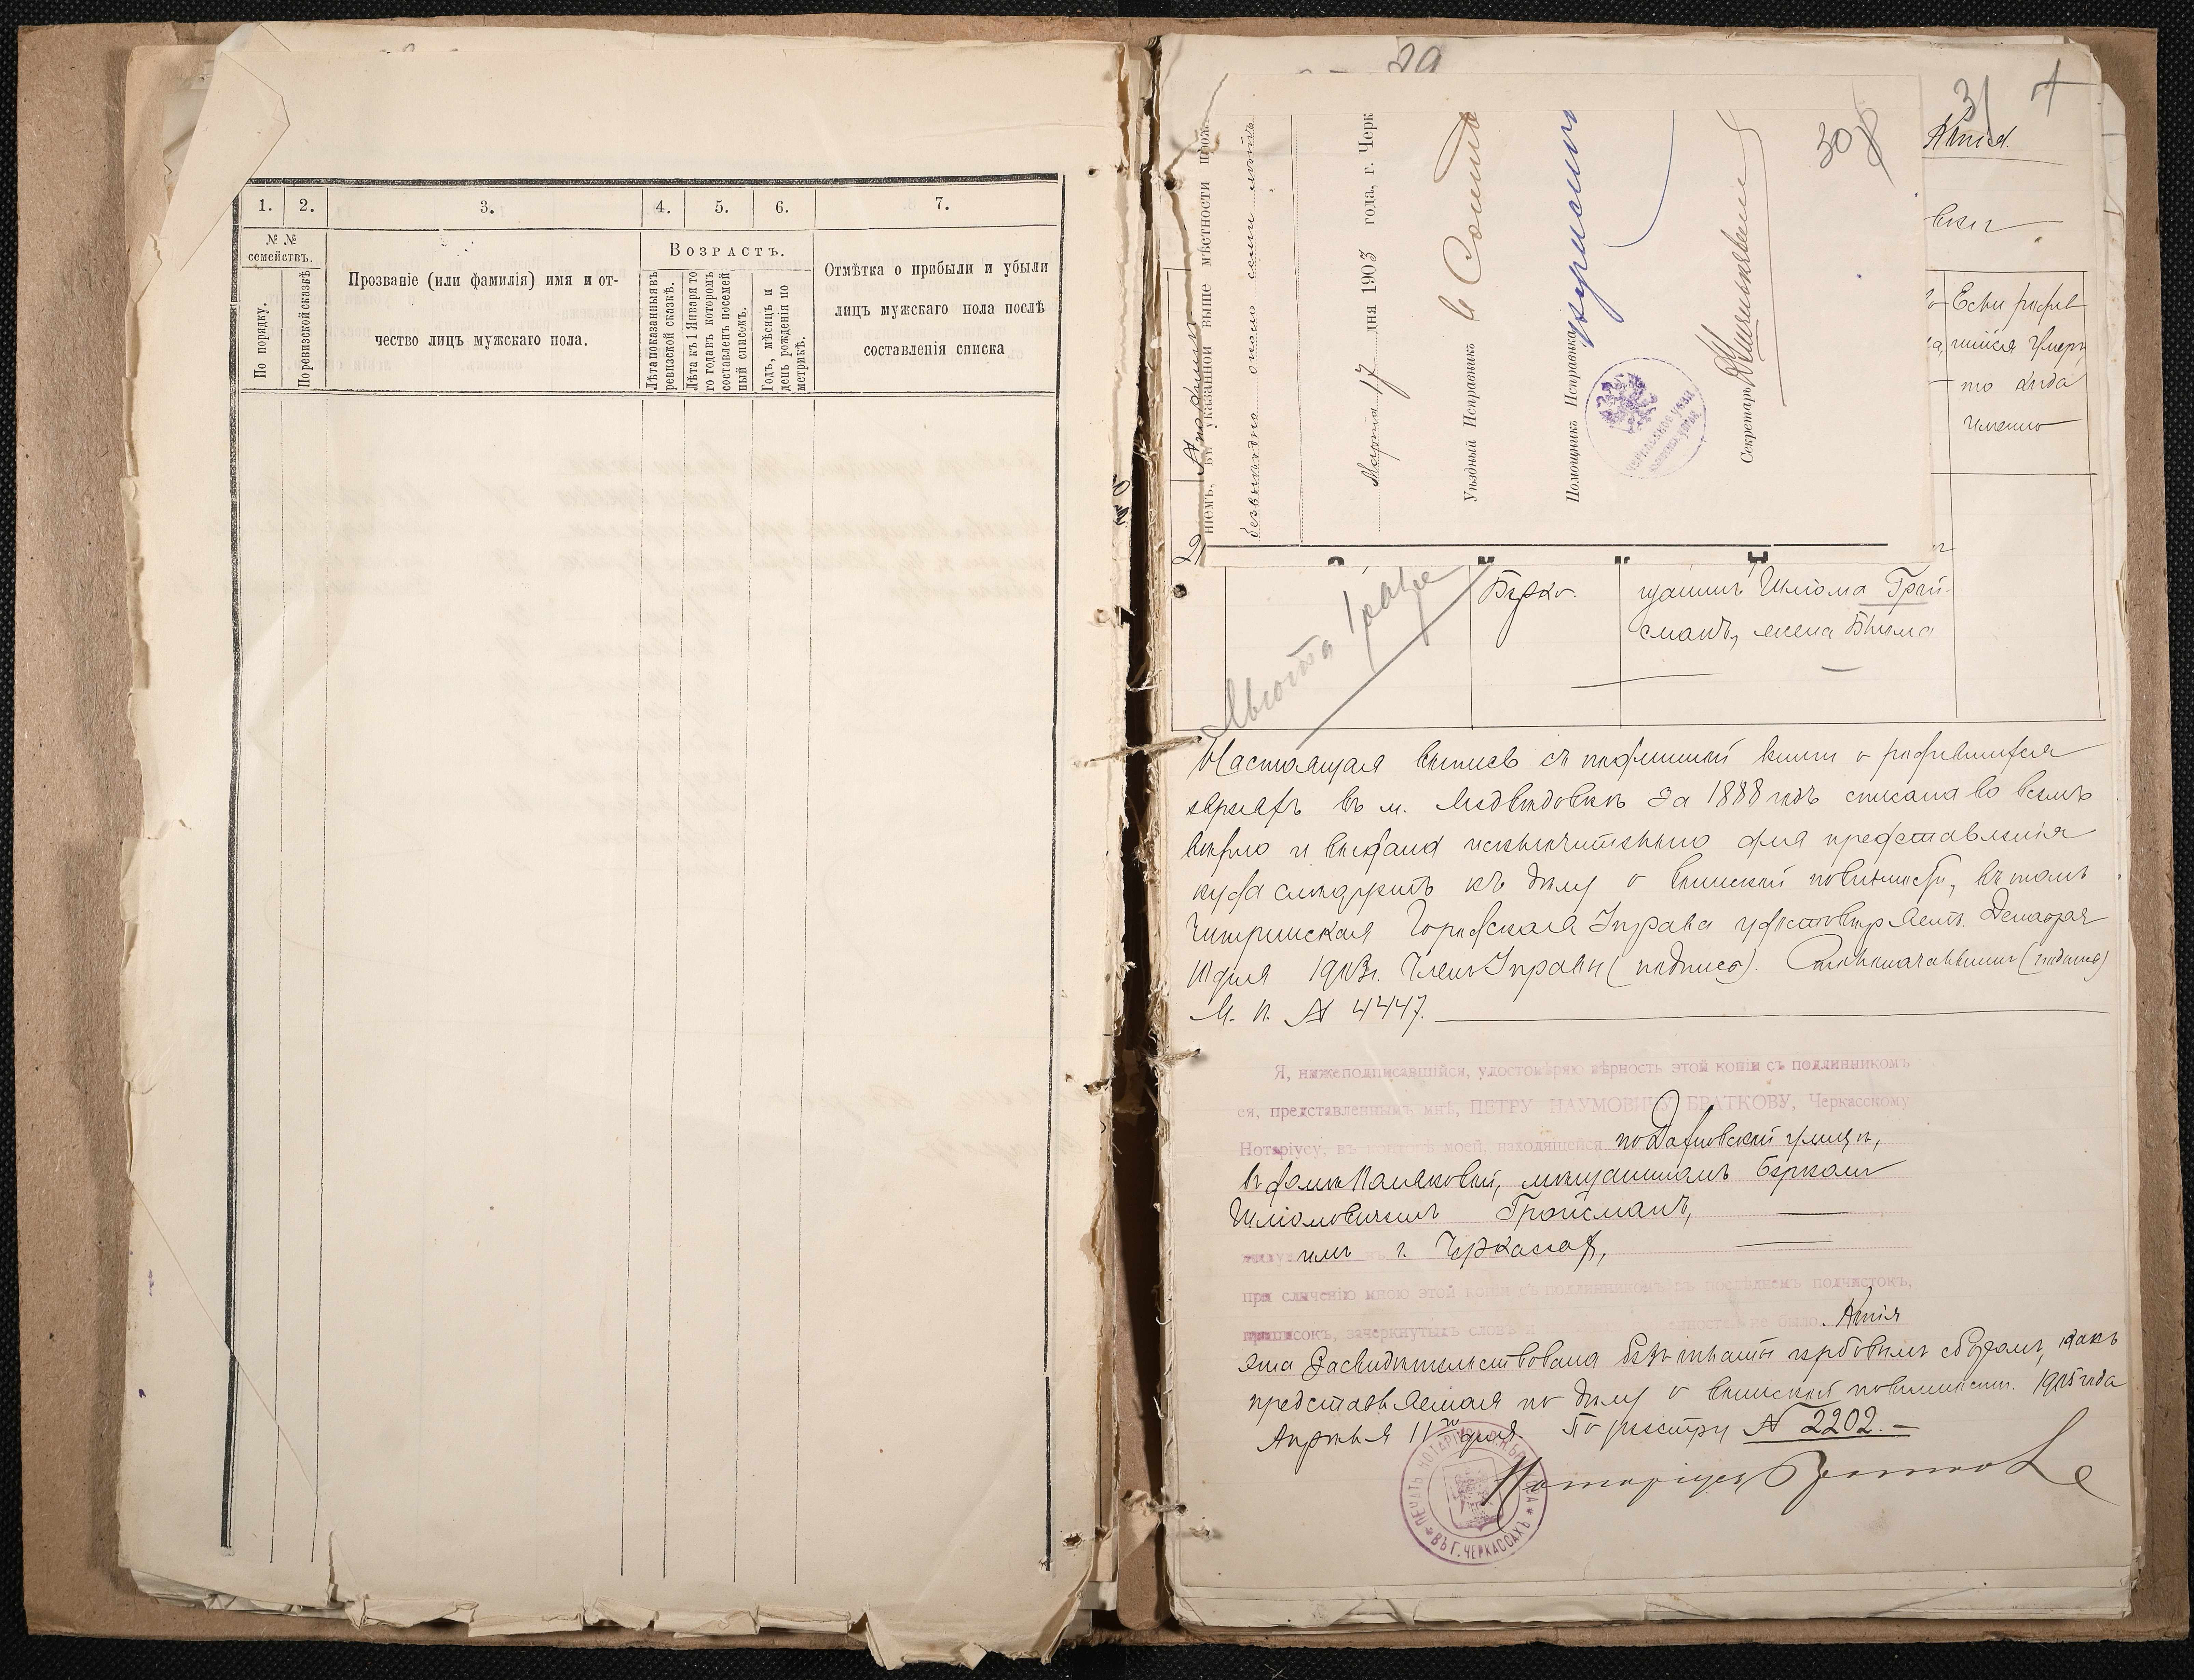 1.
2.
3.
4.
5.
6.
7.
№ №
семействъ.
По порядку.
По ревизской сказкѣ
Прозваніе (или фамилія) имя и от-
чество лицъ мужскаго пола.
Возрастъ.
Лѣта показанныя въ
ревизской сказкѣ.
Лѣта къ 1 Января то
го года въ которомъ
составленъ посемей
ный списокъ.
Годъ, мѣсяцъ и
день рожденія по
метрикѣ.
Отмѣтка о прибыли и убыли
лицъ мужскаго пола послѣ
составленія списка
29
31
30
указанной выше мѣстности
безвыходно около семи лѣтъ
Марта 17 дня 1903 года, г. Черк
Уѣздный Исправникъ
Помощникъ Исправника
Секретарь
Если родив
шійся умеръ
то когда
именно
Берко.
щанинъ Шліома Грой-
сманъ, жена Бейла
Настоящая выпись съ подлинной книги о родившихся
евреяхъ въ м. Медвѣдовкѣ за 1888 годъ списана во всемъ
вѣрно и выдана исключительно для представленія
куда слѣдуетъ къ дѣлу о воинской повинности, въ томъ
Чигиринская Городская Управа удостовѣряетъ. Декабря
10 дня 1903 г. Членъ Управы (подпись). Столоначальникъ (подпись)
М. П. № 4447.
Я, нижеподписавшійся, удостовѣряю вѣрность этой копіи съ подлинникомъ
ея, представленнымъ мнѣ, ПЕТРУ НАУМОВИЧУ БРАТКОВУ, Черкасскому
Нотаріусу, въ конторѣ моей, находящейся по Дахновской улицѣ,
въ домѣ, мѣщаниномъ Беркомъ
Шліомовичемъ Гройсманъ,
г. Черкассах,
при сличеніи мною этой копіи съ подлинникомъ въ послѣднемъ подчистокъ,
приписокъ, зачеркнутыхъ словъ не было. Копія
эта засвидѣтельствована безъ оплаты гербовымъ сборомъ, какъ
представляемая по дѣлу о воинской повинности. 1905 года
Апрѣля 11го дня По реестру № 2202.—
Нотаріусъ Братковъ
ПЕЧАТЬ НОТАРІУСА П. Н. БРАТКОВА
ВЪ Г. ЧЕРКАССАХЪ